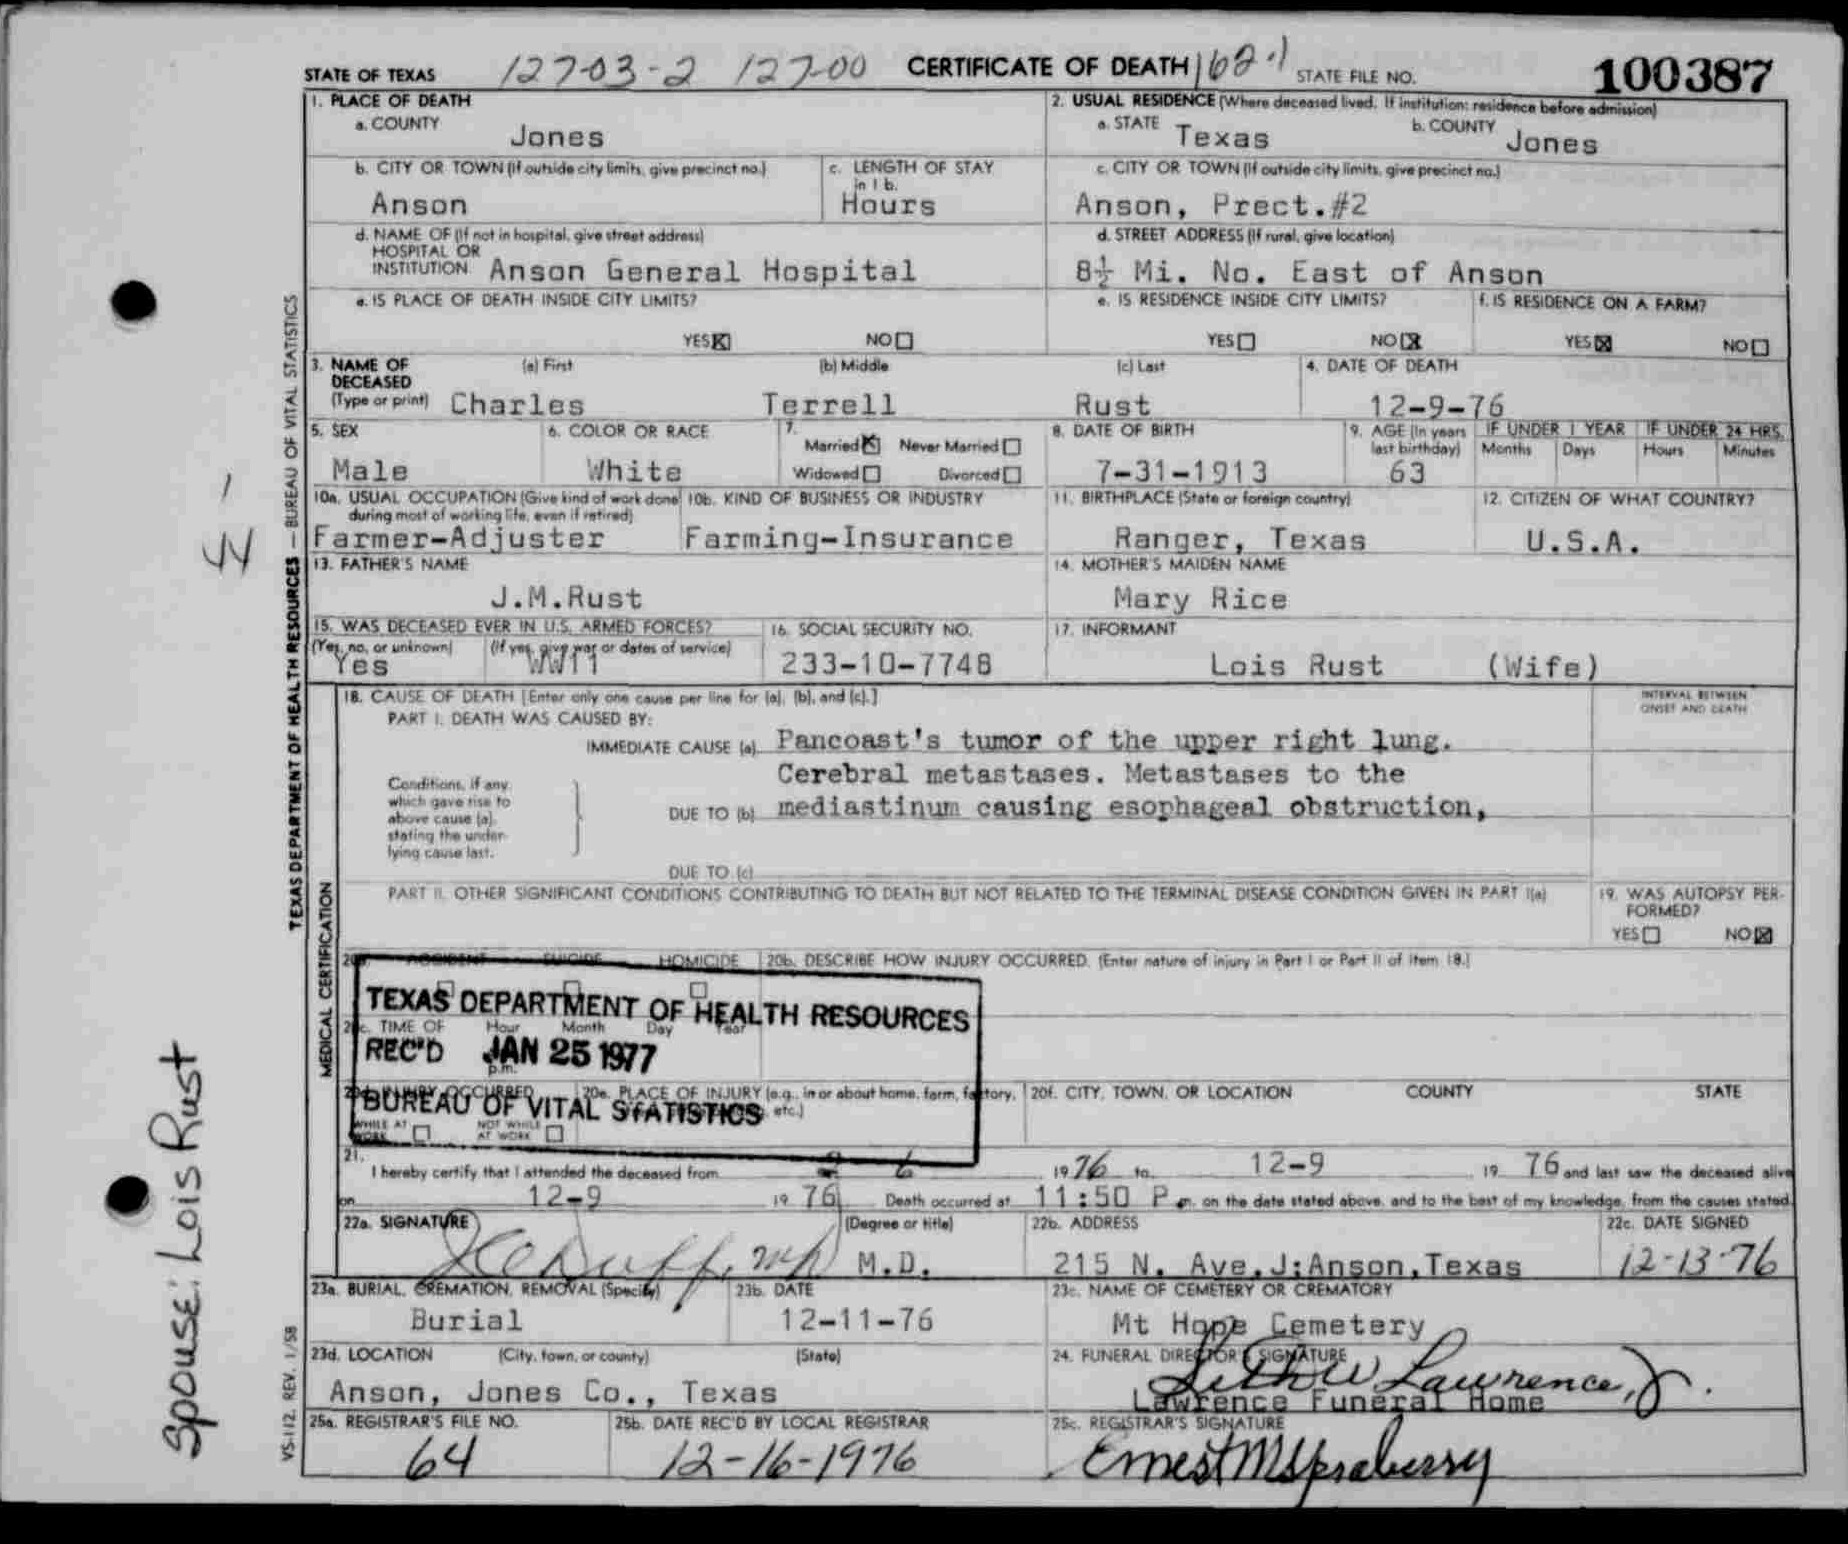 STATE OF TEXAS 127-03-2 127-00 CERTIFICATE OF DEATH 162.1 STATE FILE NO. 100387
1. PLACE OF DEATH
a. COUNTY
Jones
2. USUAL RESIDENCE (Where deceased lived. If institution: residence before admission)
a. STATE Texas b. COUNTY Jones
b. CITY OR TOWN (If outside city limits, give precinct no.)
Anson
c. LENGTH OF STAY
in 1 b.
Hours
c. CITY OR TOWN (If outside city limits, give precinct no.)
Anson, Prect.#2
d. NAME OF (If not in hospital, give street address)
HOSPITAL OR
INSTITUTION Anson General Hospital
d. STREET ADDRESS (If rural, give location)
8½ Mi. No. East of Anson
e. IS PLACE OF DEATH INSIDE CITY LIMITS?
YES☒ NO☐
e. IS RESIDENCE INSIDE CITY LIMITS?
YES☐ NO☒
f. IS RESIDENCE ON A FARM?
YES☒ NO☐
3. NAME OF
DECEASED
(Type or print)
(a) First
Charles
(b) Middle
Terrell
(c) Last
Rust
4. DATE OF DEATH
12-9-76
5. SEX
Male
6. COLOR OR RACE
White
7.
Married☒ Never Married☐
Widowed☐ Divorced☐
8. DATE OF BIRTH
7-31-1913
9. AGE (In years
last birthday)
63
IF UNDER 1 YEAR
Months Days
IF UNDER 24 HRS.
Hours Minutes
10a. USUAL OCCUPATION (Give kind of work done
during most of working life, even if retired)
Farmer-Adjuster
10b. KIND OF BUSINESS OR INDUSTRY
Farming-Insurance
11. BIRTHPLACE (State or foreign country)
Ranger, Texas
12. CITIZEN OF WHAT COUNTRY?
U.S.A.
13. FATHER'S NAME
J.M.Rust
14. MOTHER'S MAIDEN NAME
Mary Rice
15. WAS DECEASED EVER IN U.S. ARMED FORCES?
(Yes, no, or unknown) (If yes, give war or dates of service)
Yes WW11
16. SOCIAL SECURITY NO.
233-10-7748
17. INFORMANT
Lois Rust (Wife)
18. CAUSE OF DEATH [Enter only one cause per line for (a), (b), and (c).]
INTERVAL BETWEEN
ONSET AND DEATH
PART I. DEATH WAS CAUSED BY:
IMMEDIATE CAUSE (a) Pancoast's tumor of the upper right lung.
Cerebral metastases. Metastases to the
Conditions, if any
which gave rise to
above cause (a),
stating the under-
lying cause last.
DUE TO (b) mediastinum causing esophageal obstruction,
DUE TO (c)
PART II. OTHER SIGNIFICANT CONDITIONS CONTRIBUTING TO DEATH BUT NOT RELATED TO THE TERMINAL DISEASE CONDITION GIVEN IN PART I(a)
19. WAS AUTOPSY PER-
FORMED?
YES☐ NO☒
20a. ACCIDENT SUICIDE HOMICIDE
20b. DESCRIBE HOW INJURY OCCURRED. (Enter nature of injury in Part I or Part II of Item 18.)
TEXAS DEPARTMENT OF HEALTH RESOURCES
20c. TIME OF Hour Month Day Year
REC'D JAN 25 1977
p.m.
20d. INJURY OCCURRED
20e. PLACE OF INJURY (e.g., in or about home, farm, factory,
etc.)
BUREAU OF VITAL STATISTICS
WHILE AT
WORK ☐
NOT WHILE
AT WORK ☐
20f. CITY, TOWN, OR LOCATION COUNTY STATE
21.
I hereby certify that I attended the deceased from 6 1976 to 12-9 19 76 and last saw the deceased alive
on 12-9 19 76 Death occurred at 11:50 P m. on the date stated above, and to the best of my knowledge, from the causes stated.
22a. SIGNATURE (Degree or title)
M.D.
22b. ADDRESS
215 N. Ave.J;Anson,Texas
22c. DATE SIGNED
12-13-76
23a. BURIAL, CREMATION, REMOVAL (Specify)
Burial
23b. DATE
12-11-76
23c. NAME OF CEMETERY OR CREMATORY
Mt Hope Cemetery
23d. LOCATION (City, town, or county) (State)
Anson, Jones Co., Texas
24. FUNERAL DIRECTOR'S SIGNATURE
Lawrence, Jr.
Lawrence Funeral Home
25a. REGISTRAR'S FILE NO.
64
25b. DATE REC'D BY LOCAL REGISTRAR
12-16-1976
25c. REGISTRAR'S SIGNATURE
Ernest M Spraberry
TEXAS DEPARTMENT OF HEALTH RESOURCES — BUREAU OF VITAL STATISTICS
MEDICAL CERTIFICATION
VS-112 REV. 1/58
4-1
Spouse: Lois Rust